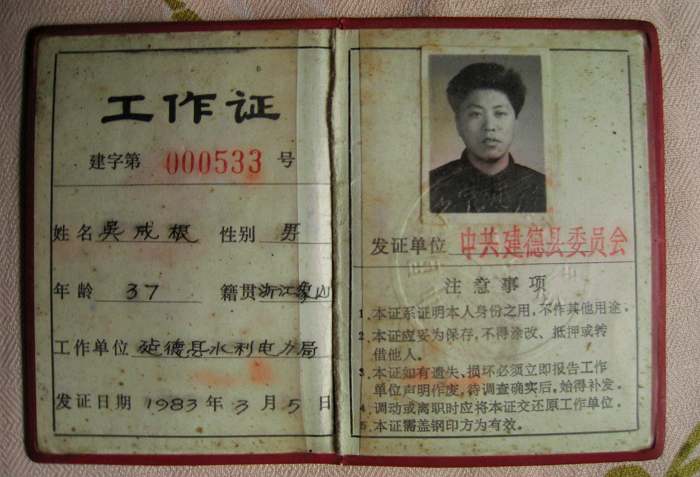 工作证
建字第 000533 号
姓名 吴成根 性别 男
年龄 37 籍贯 浙江象山
工作单位 建德县水利电力局
发证日期 1983 年 3 月 5 日
发证单位 中共建德县委员会
注意事项
1. 本证系证明本人身份之用,不作其他用途。
2. 本证应妥为保存,不得涂改、抵押或转
借他人。
3. 本证如有遗失、损坏必须立即报告工作
单位声明作废,待调查确实后,始得补发。
4. 调动或离职时应将本证交还原工作单位。
5. 本证需盖钢印方为有效。